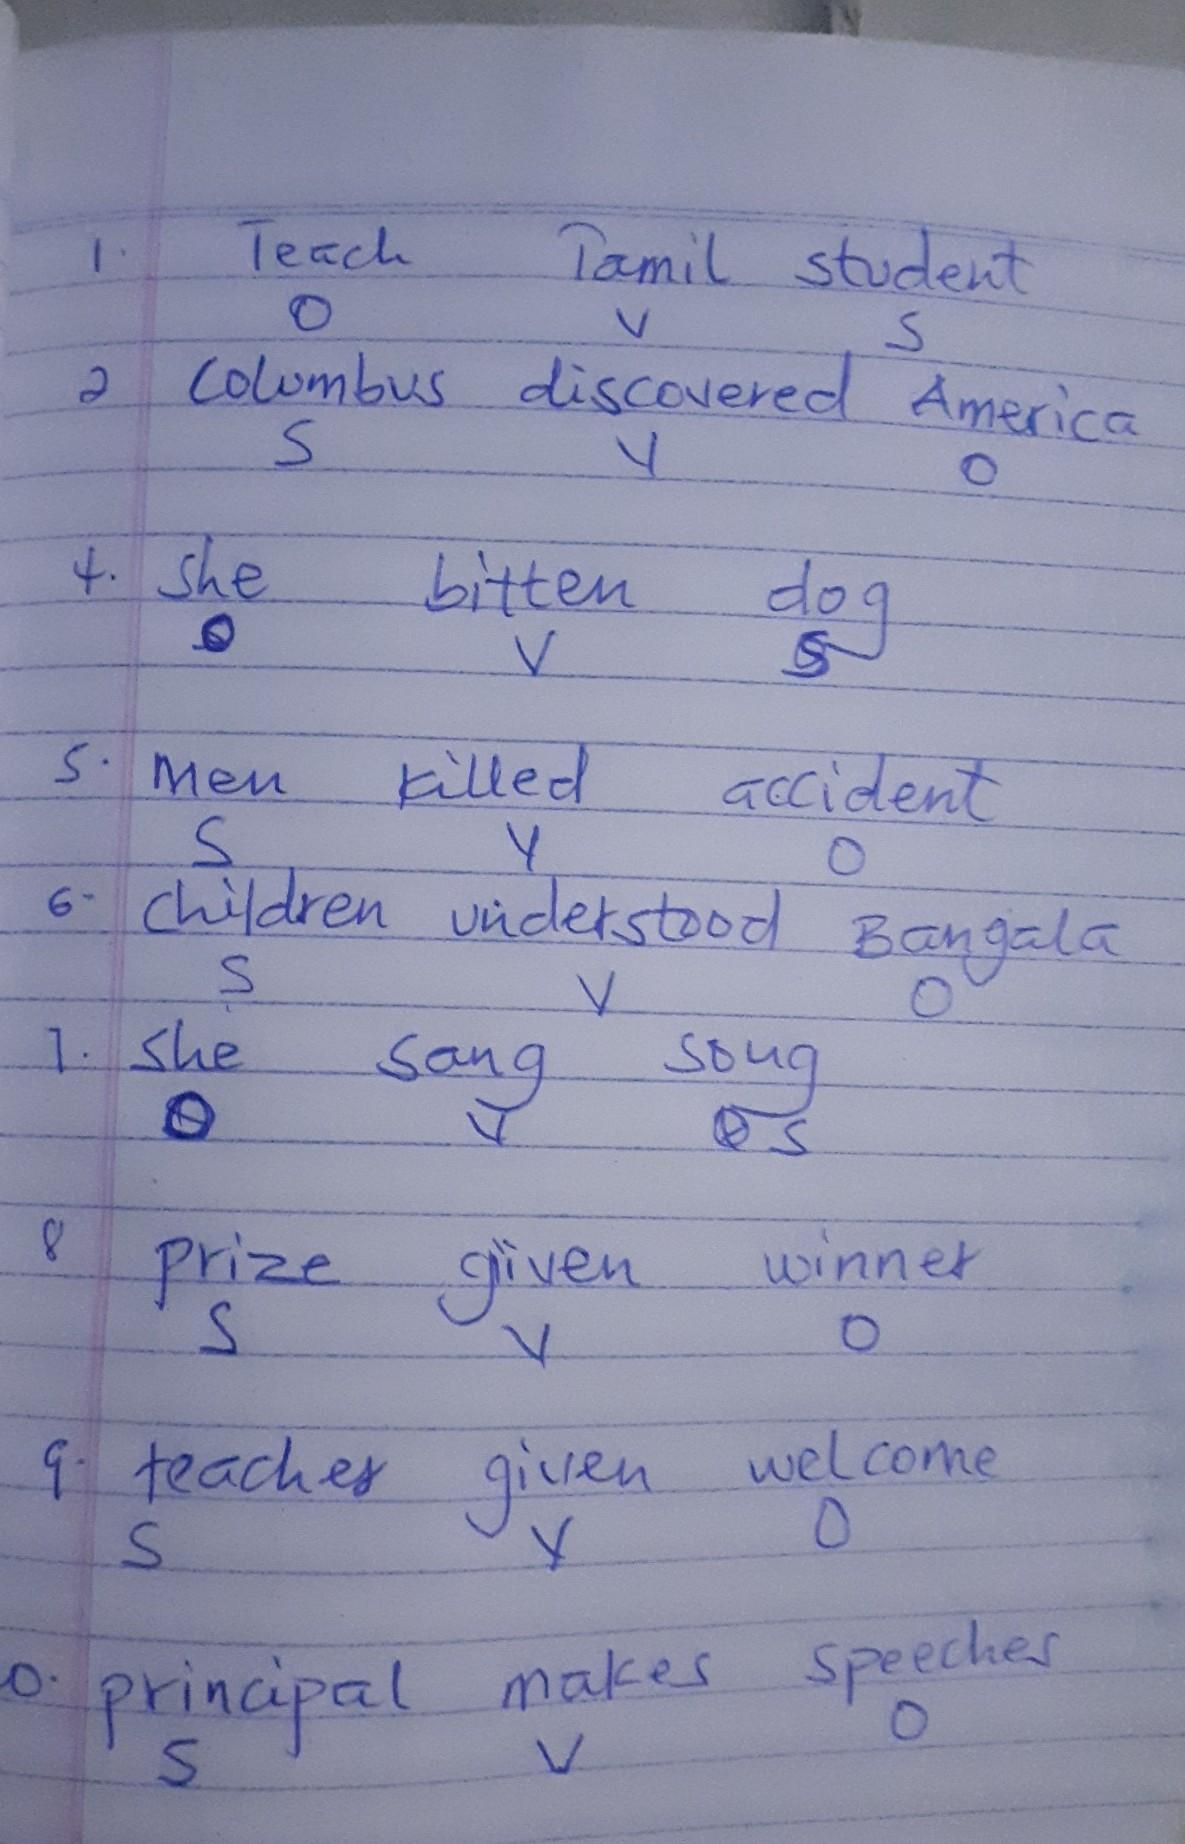 1. Teach Tamil student
O V S
2 Columbus discovered America
S V O
4. She bitten dog
O V S
5. Men killed accident
S V O
6- children understood Bangala
S V O
7. She sang song
O V S
8 prize given winner
S V O
9. teacher given welcome
S V O
0. principal makes speeches
S V O